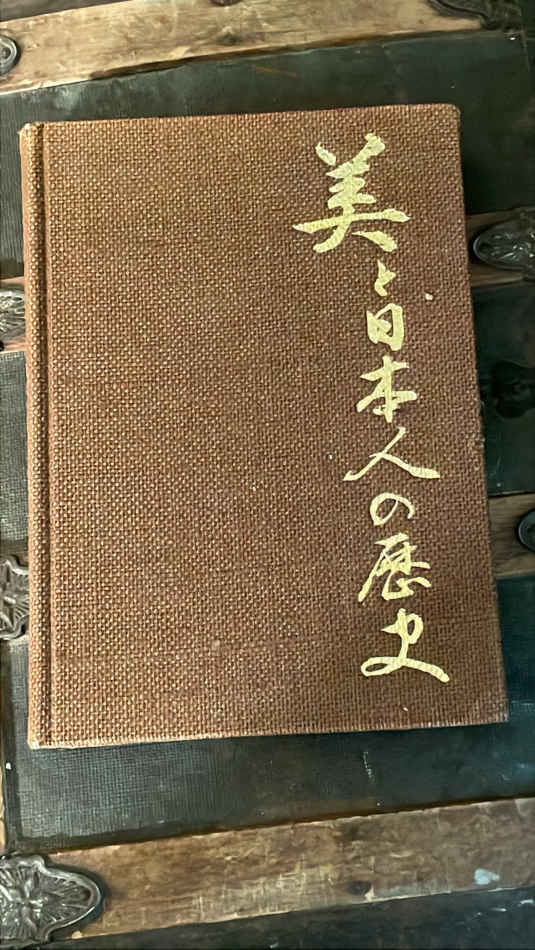 美と日本人の歴史